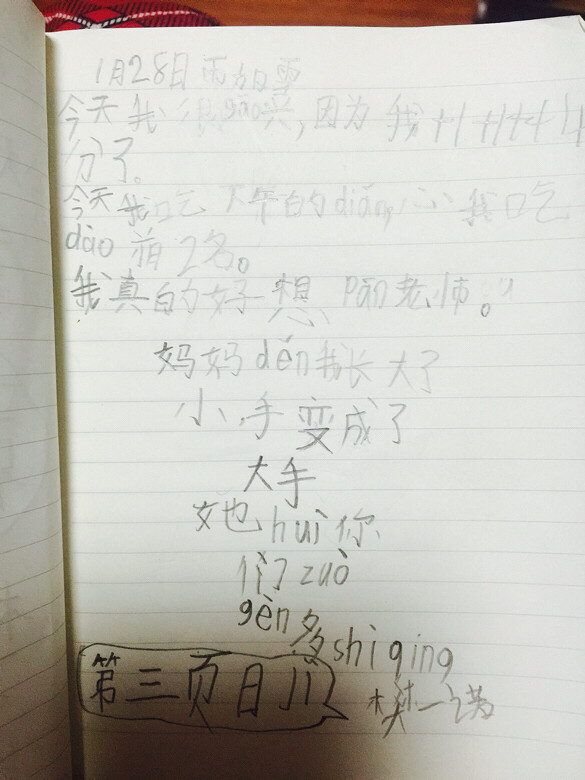 1月28日 雨加雪
今天我很gāo兴,因为我++++++4
分了。
今天我吃下午的diǎn心我口吃
dào前2名。
我真的好想pān老师。"
妈妈děn我长大了
小手变成了
大手
她huì你
们zuò
gèn多shiqing
第三页日儿
樊一诺